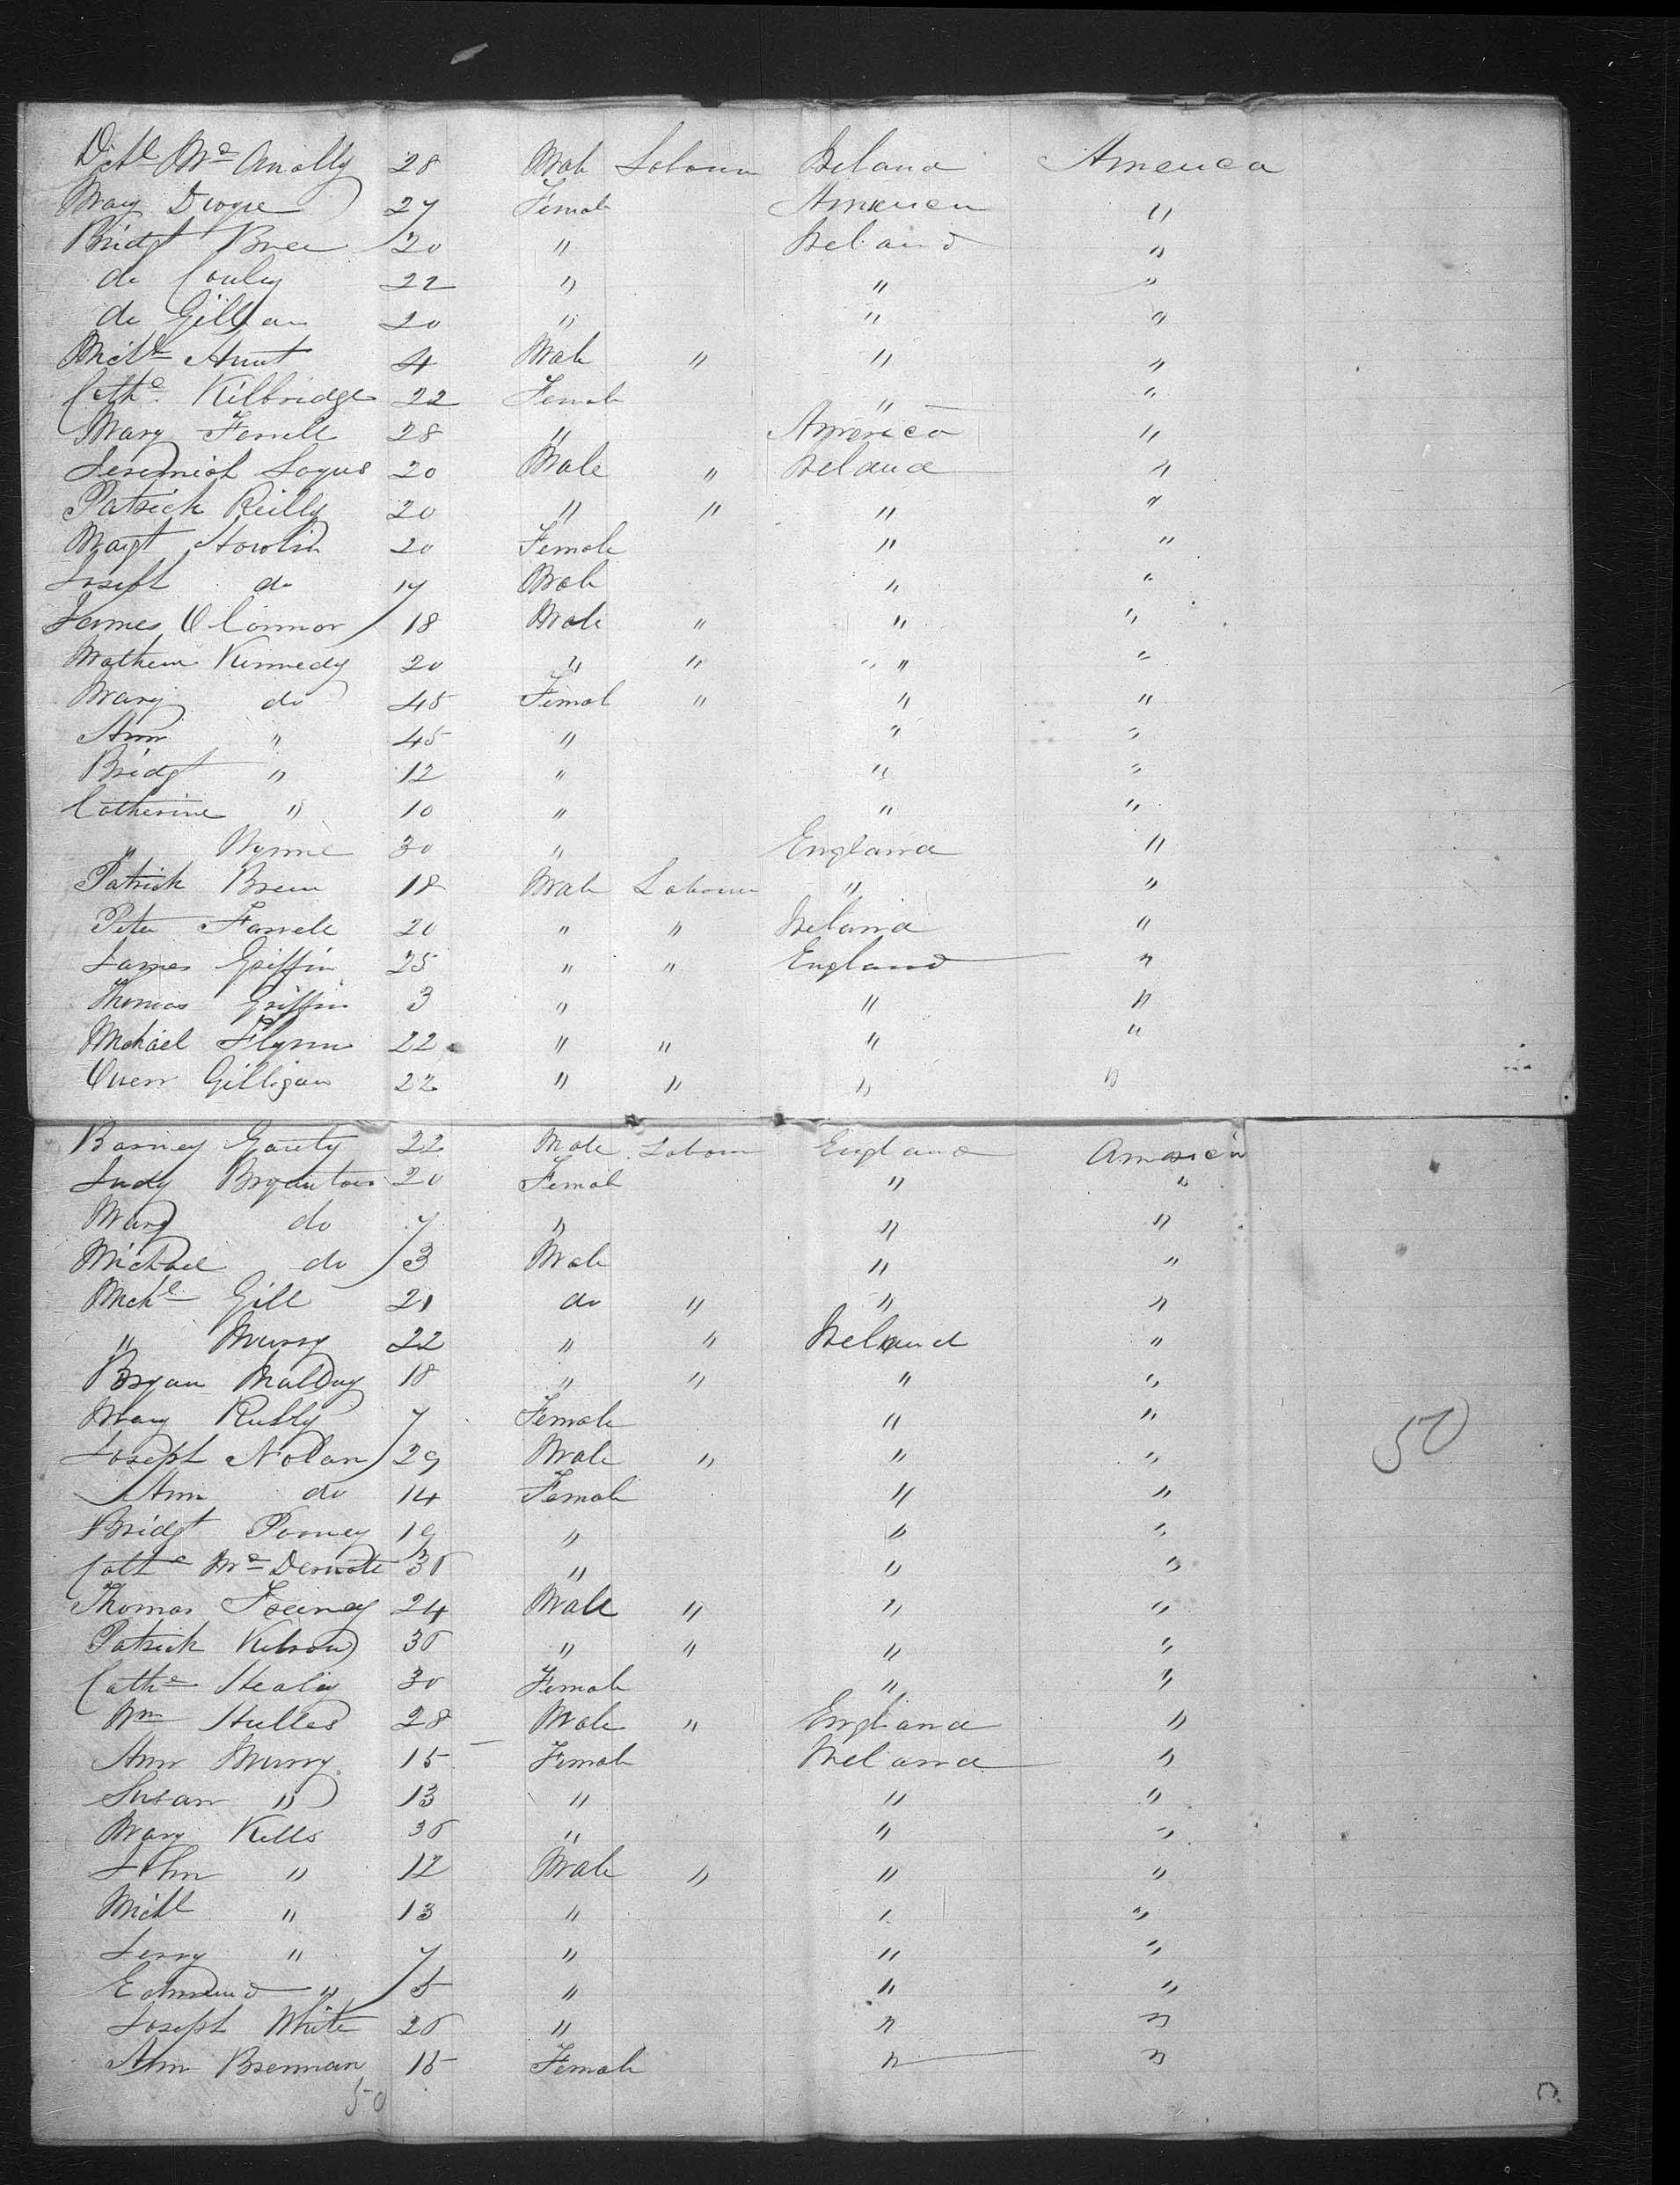 Mary Dwyre 27 Female America "
Bridgt Bree 20 " Ireland "
do Conley 22 " " "
do Gillian 20 " " "
Michl Hunt 4 Male " " "
Cathe Kilbridge 22 Female " "
Mary Ferrell 28 " America "
Jeremiah Logus 20 Male " Ireland "
Patrick Reilly 20 " " " "
Margt Howlin 20 Female " "
Joseph do 17 Male " "
James O Connor 18 Male " " "
Mathew Kennedy 20 " " " "
Mary do 45 Femal " " "
Ann " 45 " " "
Bridgt " 12 " " "
Catherine " 10 " " "
" Wynne 30 " England "
Patrick Breen 18 Male Labour " "
Peter Farrell 20 " " Ireland "
James Griffin 25 " " England "
Thomas Griffin 3 " " "
Michael Flynn 22 " " " "
Owen Gilligan 22 " " " "
Barney Garity 22 Male Labour England America
Judy 20 Female " "
Mary do 7 " " "
Michael do 3 Male " "
Michl Gill 21 do " " "
" Murry 22 " " Ireland "
Bryan 18 " " " "
Mary 7 Female " "
Joseph Nolan 29 Male " " "
Ann do 14 Female " "
Bridgt 19 " " "
Cathe Mc 30 " " "
Thomas Feeney 24 Male " " "
Patrick 30 " " " "
Cathe Healey 30 Female " "
Wm Hulles 28 Male " England "
Ann Murry 15 Female Ireland "
Susan " 13 " " "
Mary Kells 30 " " "
John " 12 Male " " "
Michl " 13 " " "
Jerry " 7 " " "
Edmund " 5 " " "
Joseph White 20 " " "
Ann Brennan 15 Female " "
50
50